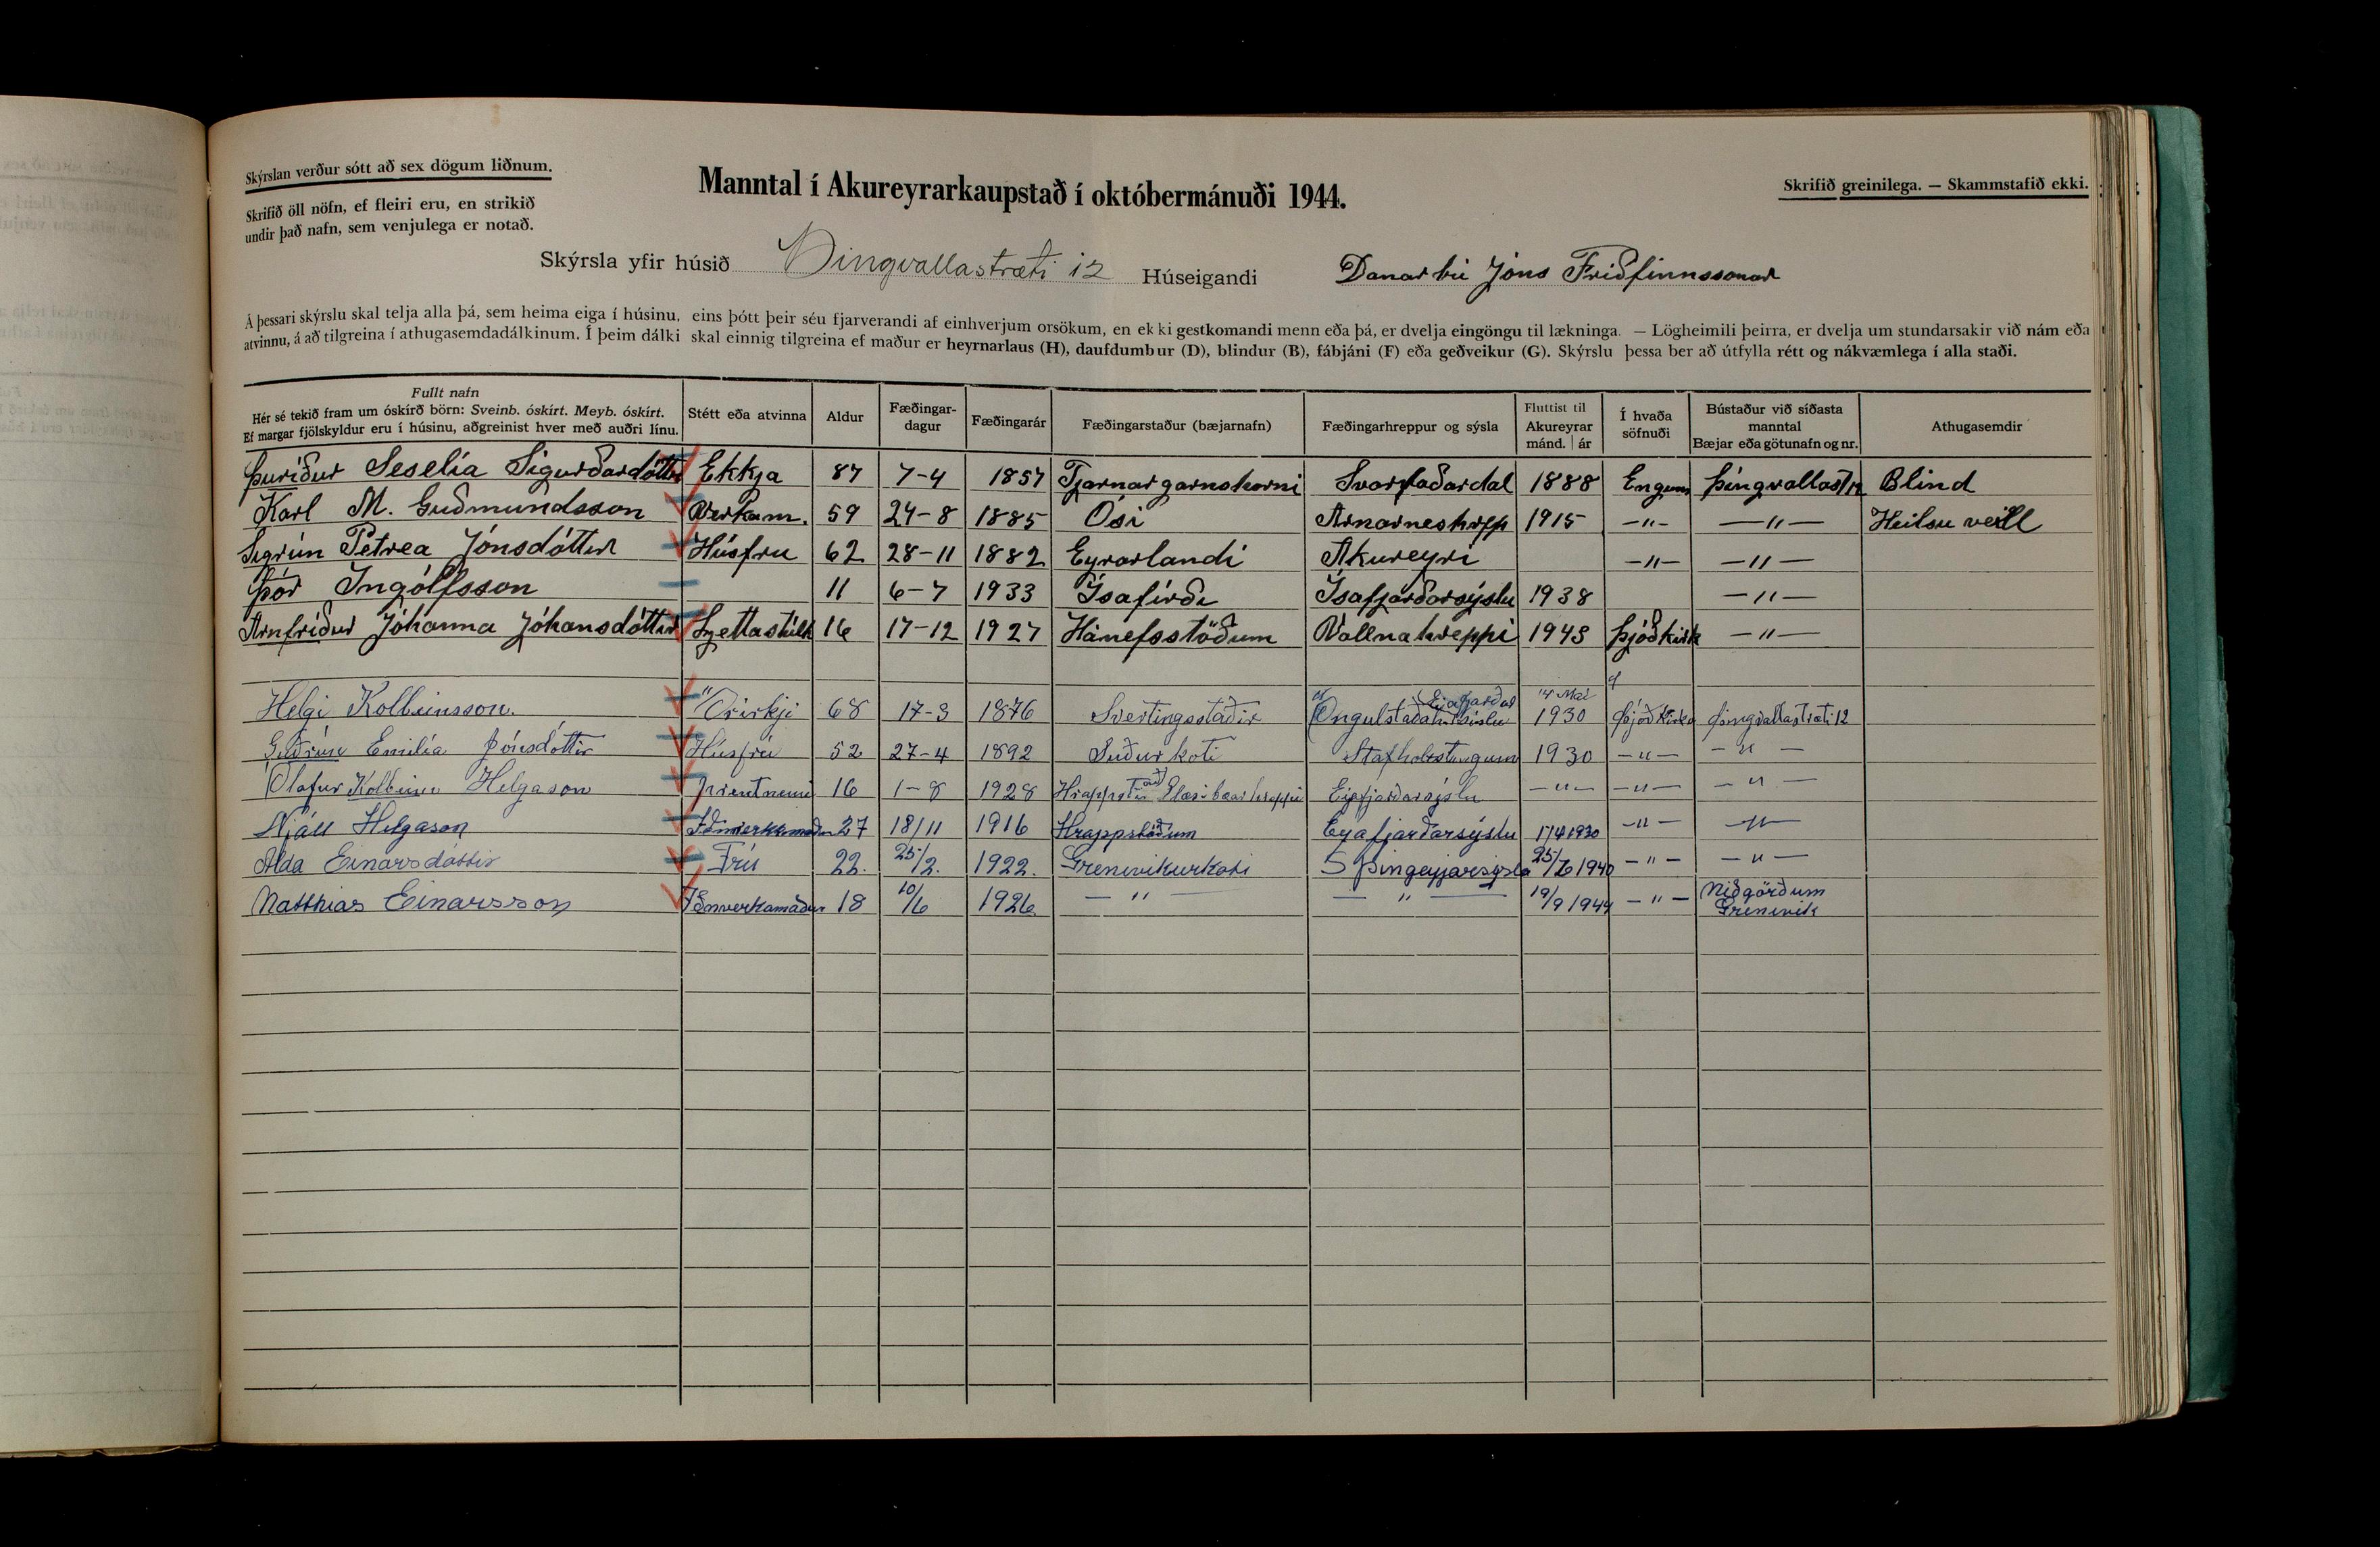 Skýrslan verður sótt að sex dögum liðnum.
Skrifið öll nöfn, ef fleiri eru, en strikið
undir það nafn, sem venjulega er notað.
Manntal í Akureyrarkaupstað í októbermánuði 1944.
Skrifið greinilega. — Skammstafið ekki.
Skýrsla yfir húsið Þingvallastræti 12 Húseigandi Danarbú Jóns Friðfinnssonar
Á þessari skýrslu skal telja alla þá, sem heima eiga í húsinu, eins þótt þeir séu fjarverandi af einhverjum orsökum, en ekki gestkomandi menn eða þá, er dvelja eingöngu til lækninga. — Lögheimili þeirra, er dvelja um stundarsakir við nám eða
atvinnu, á að tilgreina í athugasemdadálkinum. Í þeim dálki skal einnig tilgreina ef maður er heyrnarlaus (H), daufdumbur (D), blindur (B), fábjáni (F) eða geðveikur (G). Skýrslu þessa ber að útfylla rétt og nákvæmlega í alla staði.
Fullt nafn
Hér sé tekið fram um óskírð börn: Sveinb. óskírt. Meyb. óskírt.
Ef margar fjölskyldur eru í húsinu, aðgreinist hver með auðri línu.
Stétt eða atvinna
Aldur
Fæðingar-
dagur
Fæðingarár
Fæðingarstaður (bæjarnafn)
Fæðingarhreppur og sýsla
Fluttist til
Akureyrar
mánd. | ár
Í hvaða
söfnuði
Bústaður við síðasta
manntal
Bæjar eða götunafn og nr.
Athugasemdir
Þuríður Seselía Sigurðardóttir Ekkja 87 7-4 1857 Tjarnargarnshorni Svarfaðardal 1888 Engum Þingvallast 12 Blind
Karl M. Guðmundsson Verkam. 59 24-8 1885 Ósi Arnarneshrpp 1915 -"- -"- Heilsu veill
Sigrún Petrea Jónsdóttir Húsfru 62 28-11 1882 Eyrarlandi Akureyri -"- -"-
Þór Ingólfsson 11 6-7 1933 Ísafirði Ísafjarðarsýslu 1938 -"-
Arnfríður Jóhanna Jóhansdóttir 16 17-12 1927 Hánefsstöðum Vallnahreppi 1943 Þjóðkirk -"-
Helgi Kolbeinsson. Órirkji 68 17-3 1876 Svertingsstaðir Öngulstaðahr Eyjafjarðar sislu 14 Mai 1930 Þjóðkirka Þingvallastræti 12
Guðrún Emilía Jónsdóttir Húsfrú 52 27-4 1892 Suðurkoti Stafholtstungum 1930 -"- -"-
Ólafur Kolbeinn Helgason prentnemi 16 1-8 1928 Hrappst.öð Glæsibæarhreppi Eyjfjarðarsýslu -"- -"- -"-
Njáll Helgason Iðnverkamaður 27 18/11 1916 Hrappstöðum Eyafjarðarsýslu 1/4 1930 -"- -"-
Alda Einarsdóttir Frú 22. 25/2. 1922. Grenivikurkoti S Þingeyjarsýsla 25/6 1940 -"- -"-
Matthias Einarsson Iðnverkamaður 18 10/6 1926. -"- -"- 19/9 1944 -"- Miðgörðum
Grenivik